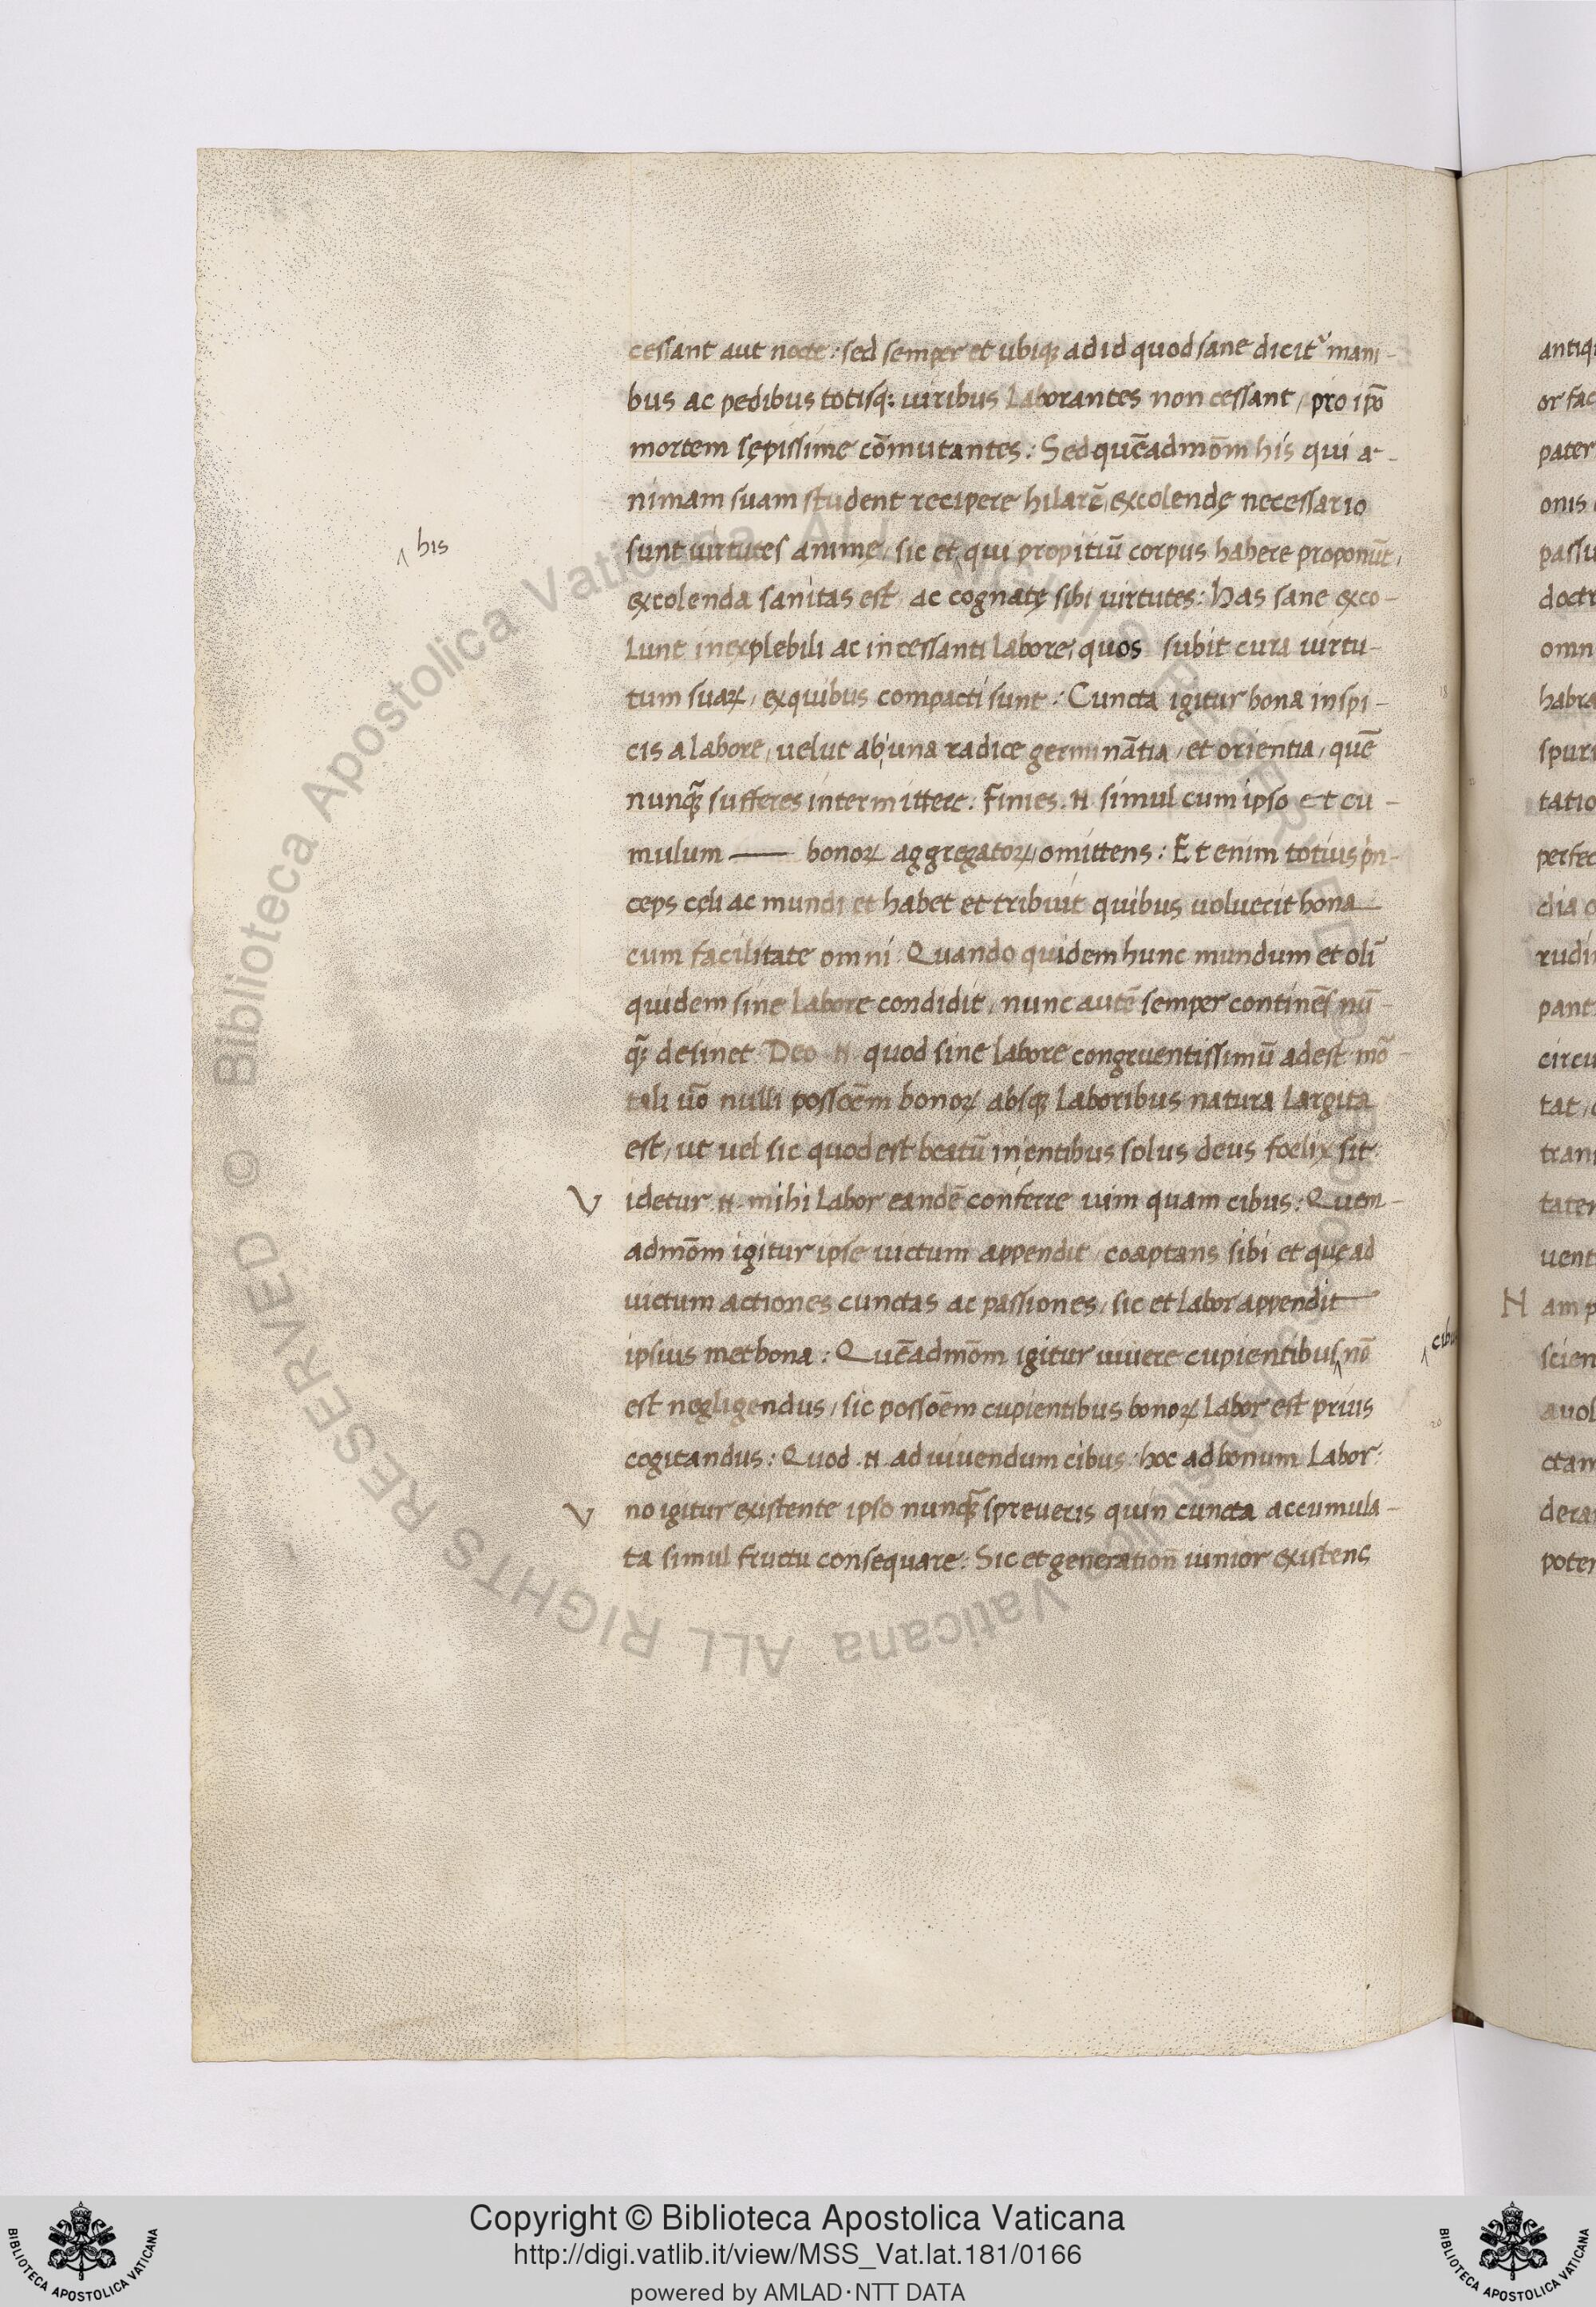 cessant aut nocte: sed semper et ubiq; ad id quod sane dicit᷑ mani-
bus ac pedibus totisq; uiribus laborantes non cessant, pro ip̄o
mortem sępissime cōmutantes: Sed quēadmōm his qui a-
nimam suam student recipere hilarē excolendę necessario
sunt uirtutes animę, sic et ‸ qui propitiū corpus habere proponūt,
‸ his
excolenda sanitas est, ac cognatę sibi uirtutes: Has sane exco-
lunt inexplebili ac incessanti labore, quos subit cura uirtu-
tum suaꝝ, ex quibus compacti sunt: Cuncta igitur bona inspi-
cis a labore, uelut ab una radice germinātia, et orientia, quē
nunq̄ sufferes intermittere: Finies .N. simul cum ipso et cu-
mulum — bonoꝝ aggregatoꝝ, omittens: Et enim totius pⁱn-
ceps cęli ac mundi et habet et tribuit quibus uoluerit bona
cum facilitate omni: Quando quidem hunc mundum et olī
quidem sine labore condidit, nunc autē semper continēs nū-
q̄ desinet: Deo .N. quod sine labore congruentissimū adest mō-
tali uō nulli possoēm bonoꝝ absq; laboribus natura largita
est, ut uel sic quod est beatū in entibus solus deus foelix sit.
V idetur .N. mihi labor eandē conferre uim quam cibus: Quem-
admōm igitur ipse uictum appendit, coaptans sibi et quę ad
uictum actiones cunctas ac passiones, sic et labor appendit
ipsius met bona: Quēadmōm igitur uiuere cupientibus ‸ nō
‸ cibus
est negligendus, sic possoēm cupientibus bonoꝝ labor est prius
cogitandus: Quod .N. ad uiuendum cibus: hoc ad bonum labor:
V no igitur existente ipso nunq̄ spreueris quin cuncta accumula-
ta simul fructu consequare: Sic et generation̄ iunior existens
antiq
or fac
pater
onis
passu
doctr
omn
habra
spuri
tatio
perfec
dia
rudi
pant
circu
tat,
trans
tater
uent
N am p
scien
auol
ctam
dera
poter
Copyright © Biblioteca Apostolica Vaticana
http://digi.vatlib.it/view/MSS_Vat.lat.181/0166
powered by AMLAD·NTT DATA
BIBLIOTECA APOSTOLICA VATICANA
BIBLIOTECA APOSTOLICA VATICANA